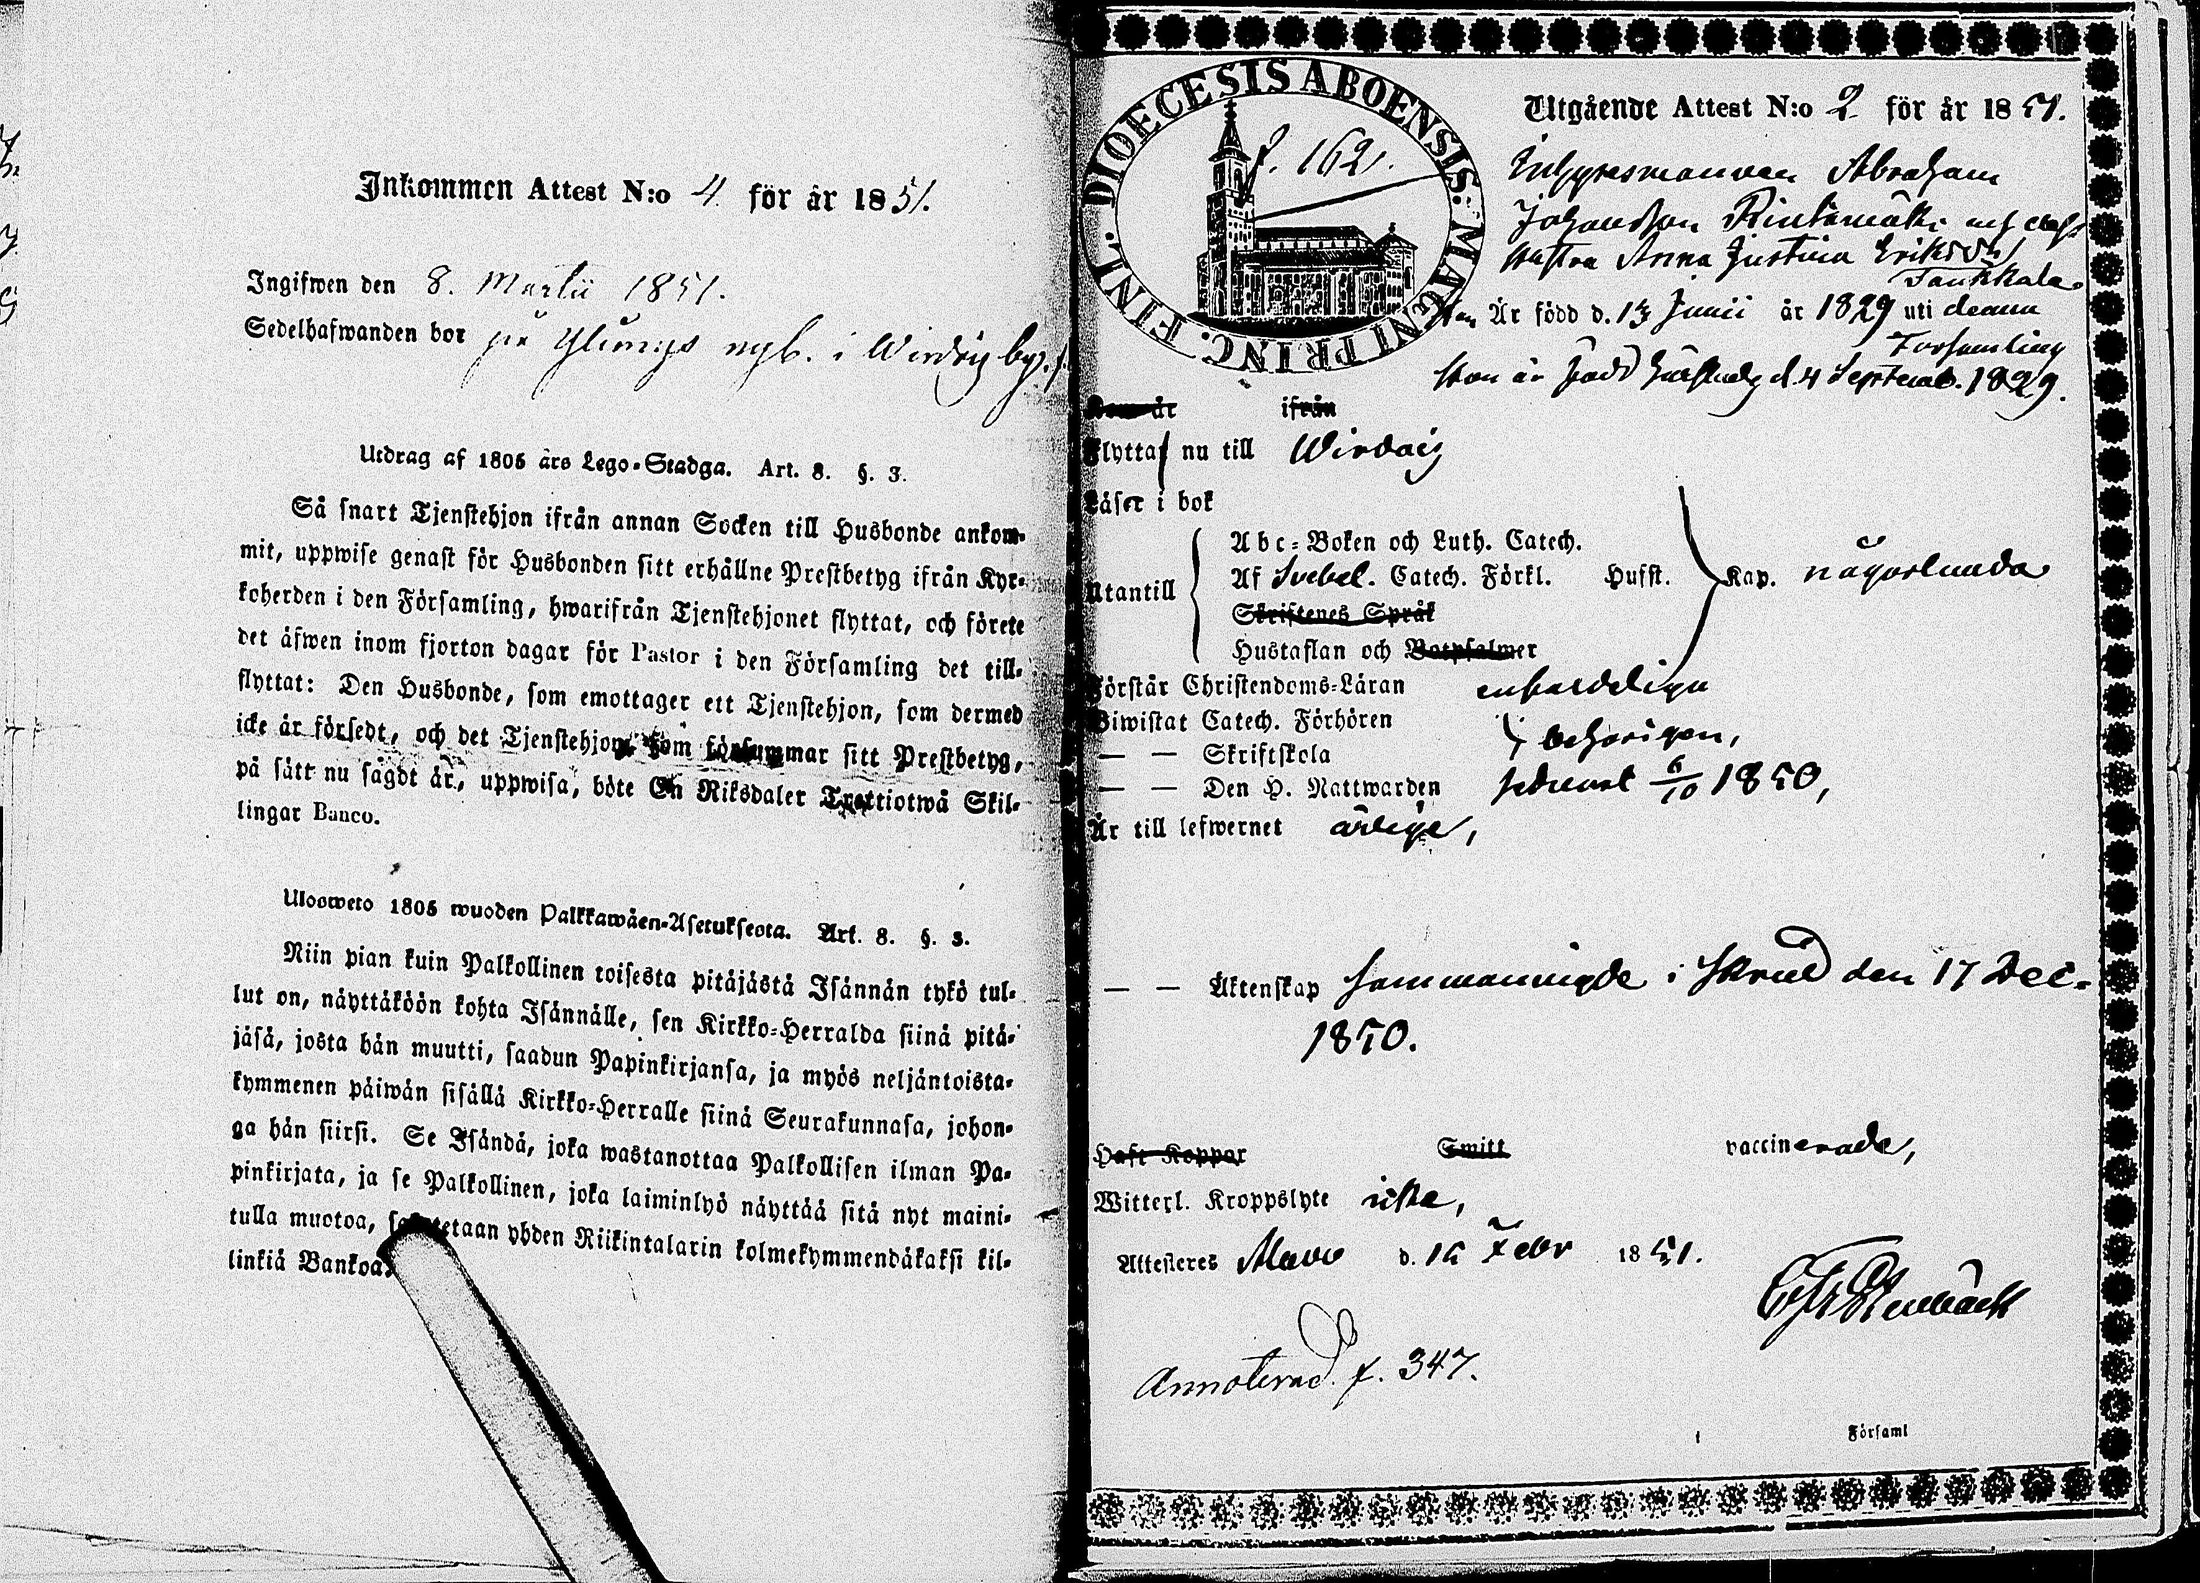 Inkommen Attest N:o 4 för år 1851.
Ingifwen den 8. Martii 1851.
Sedelhafwanden bor på nyb. i Wirdois by.
Utdrag af 1805 års Lego-Stadga. Art. 8. §. 3.
Så snart Tjenstehjon ifrån annan Socken till Husbonde ankom-
mit, uppwise genast för Husbonden sitt erhållne Prestbetyg ifrån Kyr-
koherden i den Församling, hwarifrån Tjenstehjonet flyttat, och förete
det äfwen inom fjorton dagar för Pastor i den Församling det till-
flyttat: Den Husbonde, som emottager ett Tjenstehjon, som dermed
icke är försedt, och det Tjenstehjon, som försummar sitt Prestbetyg,
på sätt nu sagdt är, uppwisa, böte En Riksdaler Trettiotwå Skil-
lingar Banco.
Ulosweto 1805 wuoden Palkkawäen-Asetuksesta. Art. 8. §. 3.
Niin pian kuin Palkollinen toisesta pitäjästä Isännän tykö tul-
lut on, näyttäköön kohta Isännälle, sen Kirkko-Herralda siinä pitä-
jäsä, josta hän muutti, saadun Papinkirjansa, ja myös neljäntoista-
kymmenen päiwän sisällä Kirkko-Herralle siinä Seurakunnasa, johon-
ga hän siirsi. Se Isändä, joka wastanottaa Palkollisen ilman Pa-
pinkirjata, ja se Palkollinen, joka laiminlyö näyttää sitä nyt maini-
tulla muotoa, sakotetaan yhden Riikintalarin kolmekymmendäkaksi kil-
linkiä Bankoa.
DIOECESIS ABOENSIS. MAGNI PRINC. FINL.
f. 162.
Utgående Attest N:o 2 för år 1851.
Inhysesmannen Abraham
Johansson Rintamäki och dess
Hustru Anna Justina Eriksdr
Tankkala
Han Är född d. 13 Junii år 1829 uti denna
Församling
Hon är född härstädes d. 4 Septemb. 1829.
Kom år ifrån
Flytta nu till Wirdois
Läser i bok
Abc-Boken och Luth. Catech.
Utantill Af Svebel. Catech. Förkl. Husst. Kap. någorlunda
Skriftenes Språk
Hustaflan och Botpsalmer
Förstår Christendoms-Läran enfaldeligen
Biwistat Catech. Förhören
— — Skriftskola behörigen,
— — Den H. Nattwarden senast 6/10 1850,
Är till lefwernet ärlige,
— — Äktenskap sammanvigde i Strand den 17 Dec.
1850.
Haft Koppor Smitt vaccinerade,
Witterl. Kroppslyte icke,
Attesteres Alavo d. 15 Febr 1851.
Annoterad. f. 347.
Församl